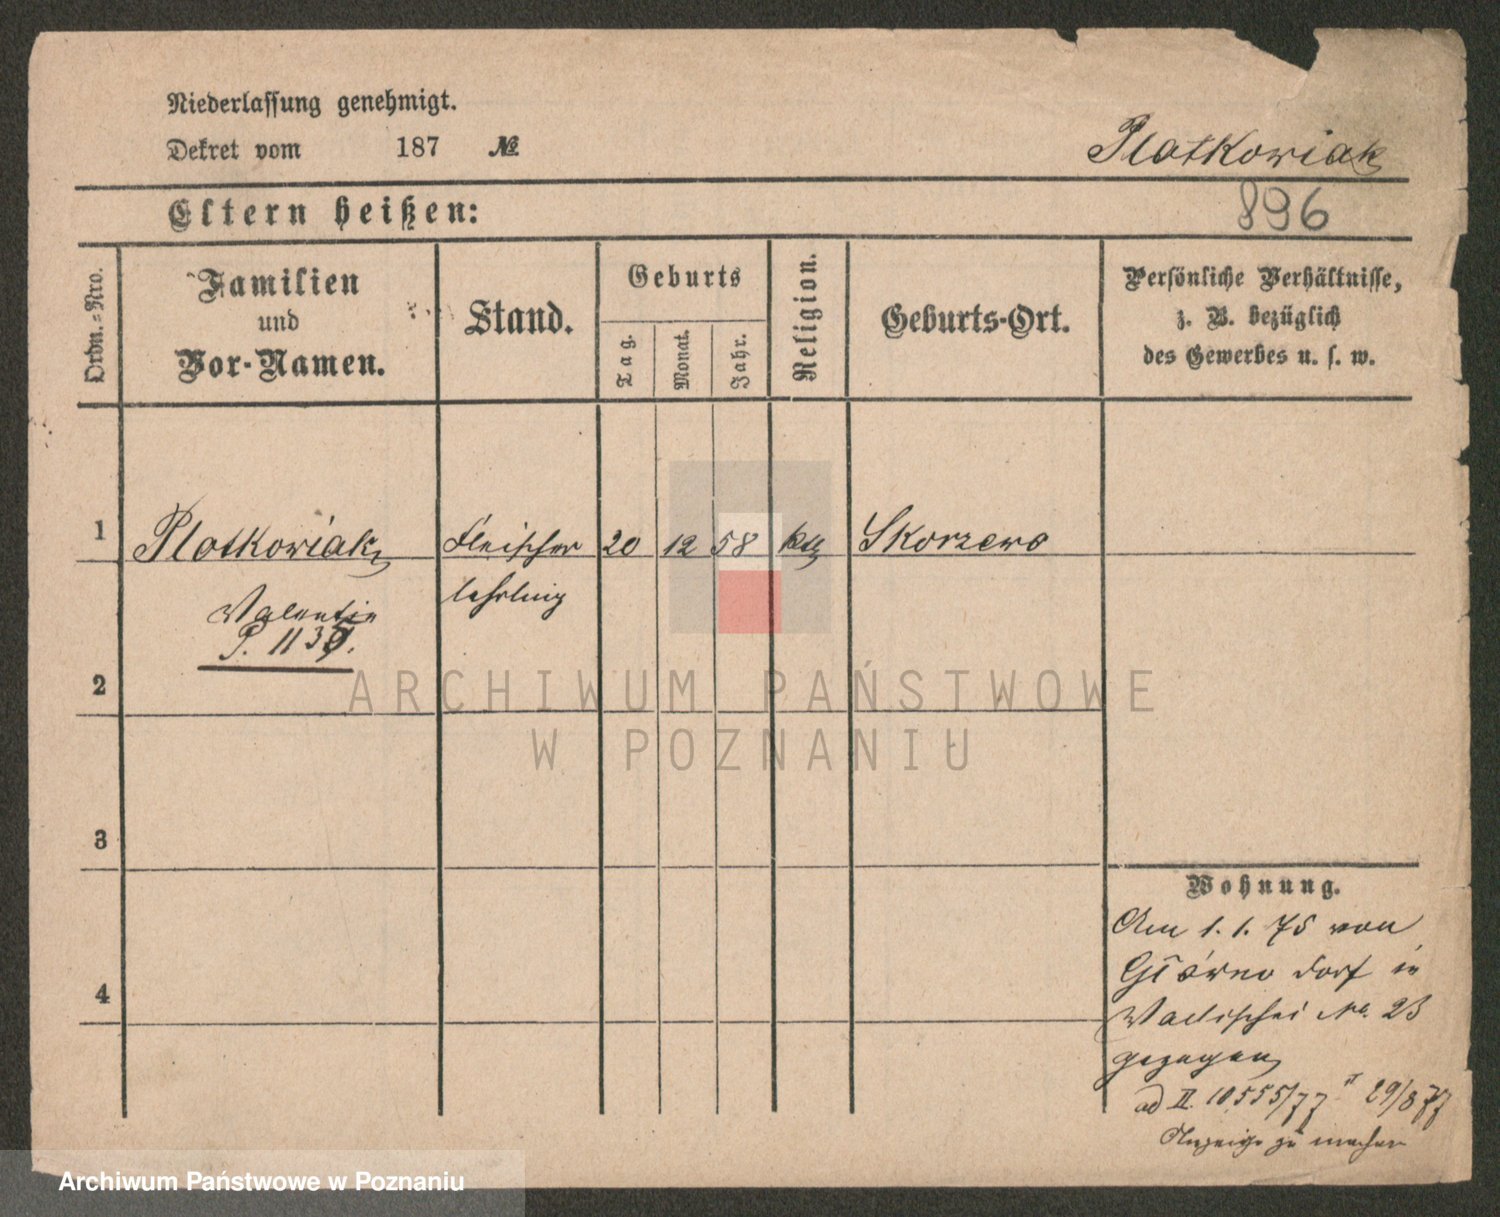 Niederlassung genehmigt.
Dekret vom 187 №
Plotkowiak
Eltern heißen:
896
Ordn.-Nro.
Familien
und
Vor-Namen.
Stand.
Geburts
Tag.
Monat.
Jahr.
Religion.
Geburts-Ort.
Persönliche Verhältnisse,
z. B. bezüglich
des Gewerbes u. s. w.
1 Plotkowiak Fleischer 20 12 58 kth Skorzewo
Valentin lehrling
P. 113
2
3
4
Wohnung.
Am 1. 1. 75 von
Glówno dorf in
Wallischei No. 23
gezogen
ad II. 10555/77 II 29/8 77
Anzeige zu machen
ARCHIWUM PAŃSTWOWE
W POZNANIU
Archiwum Państwowe w Poznaniu